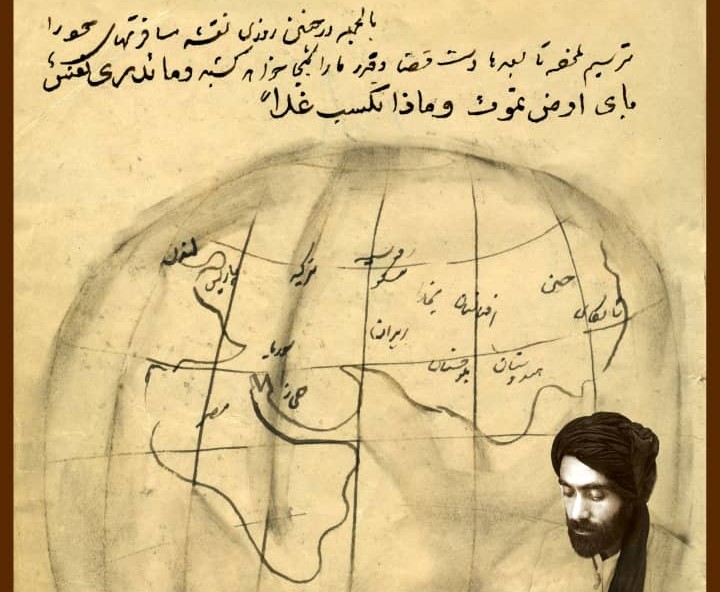 بالجمله در چنین روزی نقشه مسافرتهای خود را
ترسیم نموده تا بعدها دست قضا و قدر مارا بکجا کشد وما تدری نفس
بای ارض تموت وماذا تکسب غدا"
لندن
پاریس
ترکیه
روسیه
مسکو
افغانستان
چین
شانگهای
ایران
سوریا
بلوچستان
هندوستان
حجاز
مصر